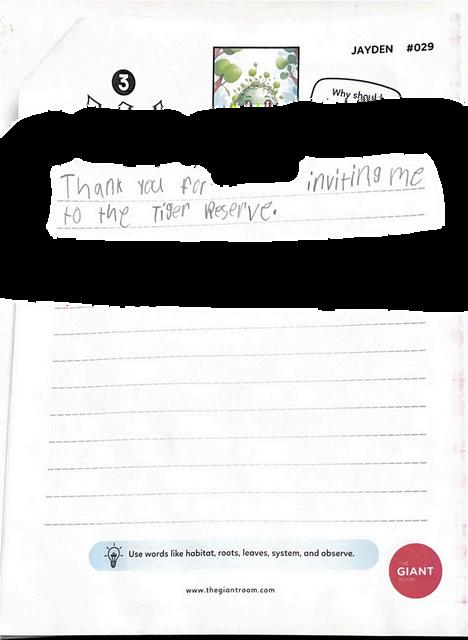 JAYDEN #029
3
Why should
Thank you for inviting me
to the Tiger Reserve.
Use words like habitat, roots, leaves, system, and observe.
THE
GIANT
ROOM
www.thegiantroom.com